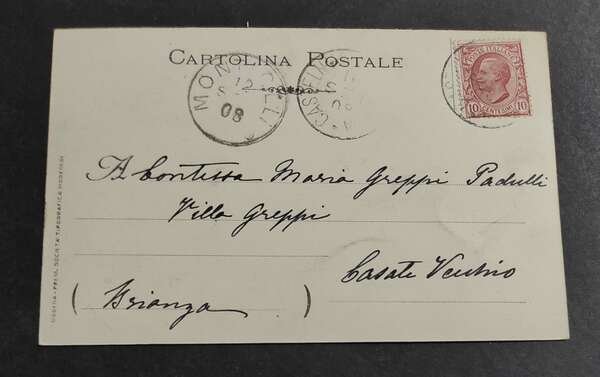 CARTOLINA POSTALE
POSTE ITALIANE
10 CENTESIMI 10
12
08
A Contessa Maria Greppi Padulli
Villa Greppi
Casate Vecchio
(Brianza)
MODENA - PREM. SOCIETÀ TIPOGRAFICA MODENESE